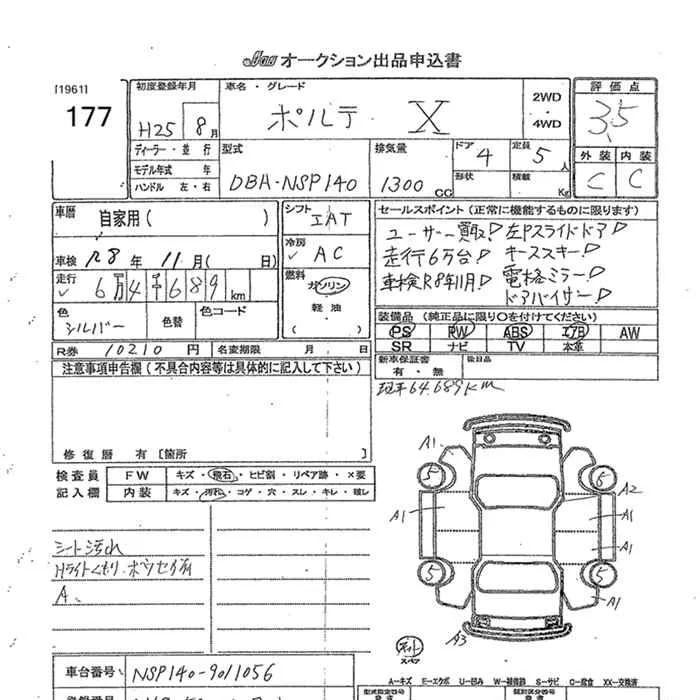 Jau オークション出品申込書
[1961]
177
初度登録年月
H25 8月
車名・グレード
ポルテ X
2WD
・
4WD
評価点
3.5
外装 内装
C C
ディーラー・並行
モデル年式 年
ハンドル 左・右
型式
DBA-NSP140
排気量
1300 CC
ドア 4
定員 5人
形状
積載 Kg
車歴
自家用( )
車検 R8年 11月( 日)
走行 6万4千689km
色
シルバー
色替
色コード
シフト
IAT
冷房
AC
燃料
ガソリン
軽油
セールスポイント(正常に機能するものに限ります)
ユーザー買取! 左Pスライドドア!
走行6万台! キーススキー!
車検R8年11月! 電格ミラー!
ドアバイザー!
装備品(純正品に限り○を付けてください)
PS PW ABS エアB AW
SR ナビ TV 本革
新車保証書
有・無
後日品
R券 10210円
名変期限 月 日
注意事項申告欄(不具合内容等は具体的に記入して下さい)
修復歴 有[箇所 ]
現車64.689km
検査員
記入欄
FW キズ・飛石・ヒビ割・リペア跡・×要
内装 キズ・汚れ・コゲ・穴・スレ・キレ・破し
シート汚れ
HライトくもリA
A1
5
6
A2
A1
A1
A1
5
5
A1
A3
スペア
A=キズ E=エクボ U=凹み W=補修跡 S=サビ C=腐食 XX=交換済
車台番号 NSP140-9011056
型式指定番号
類別区分番号